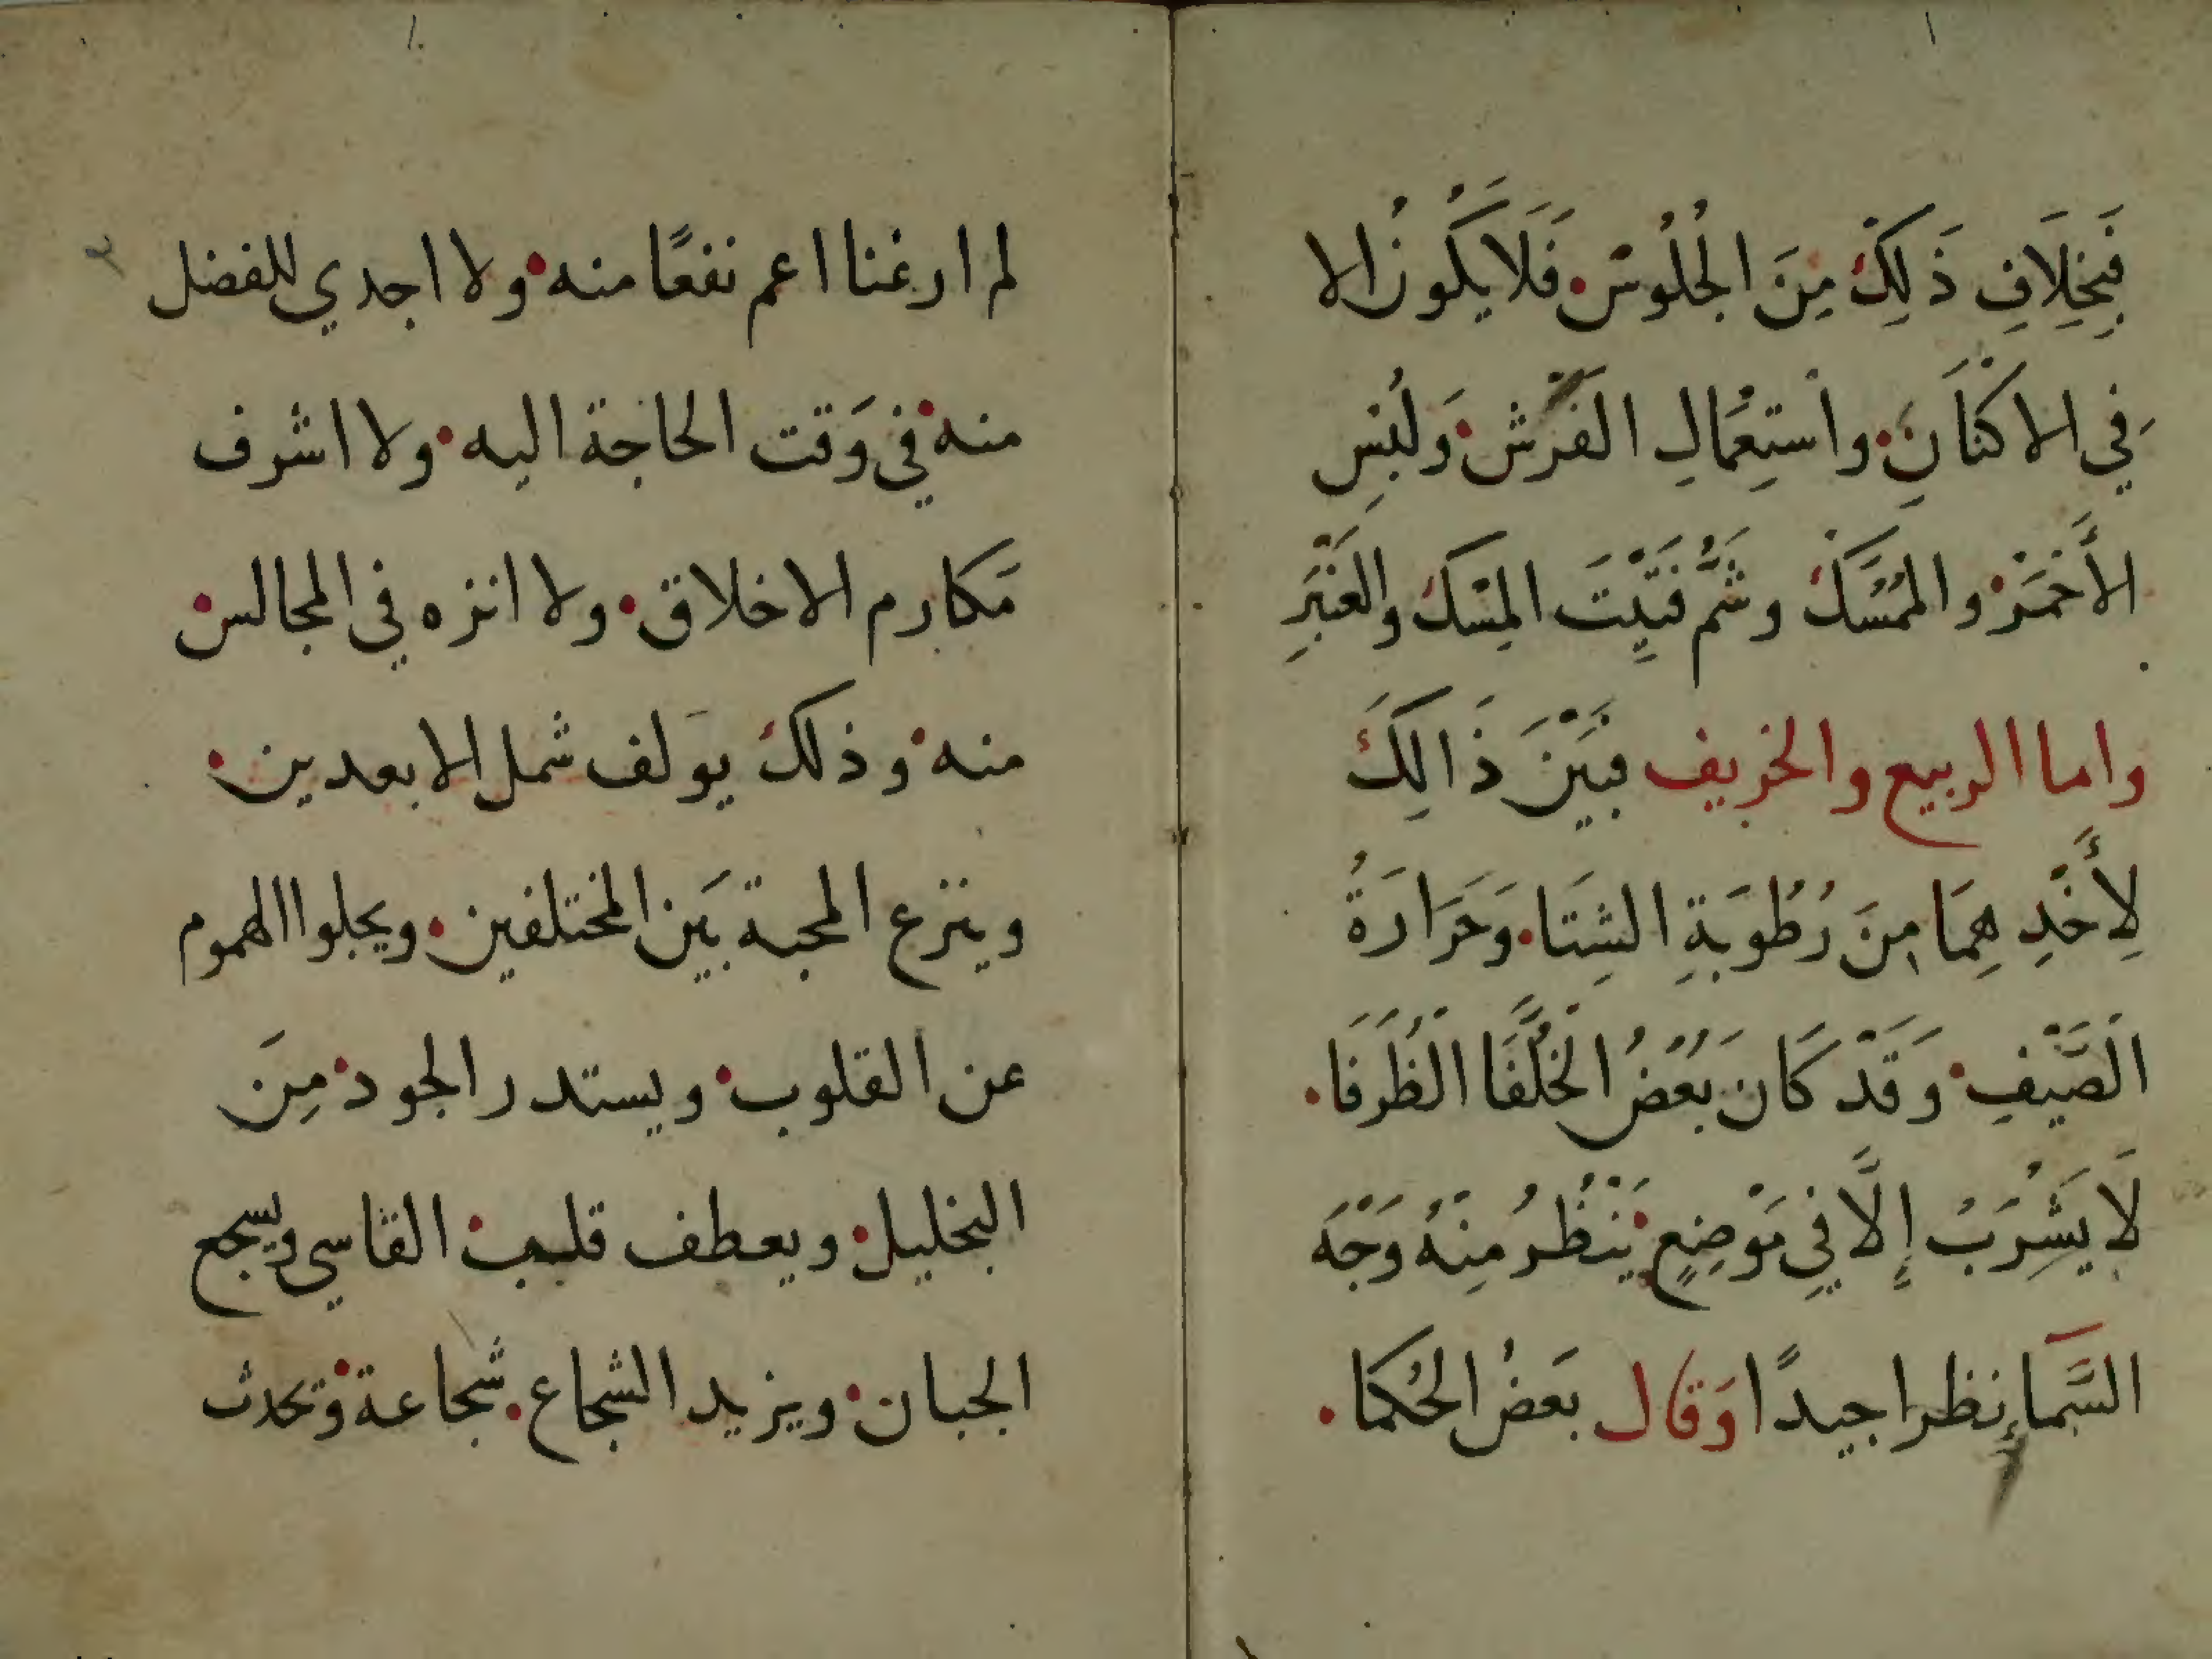 فَبِخِلَافِ ذَلِكَ مِنَ الجُلُوسْ فَلَا يَكُونُ الا
فِي الاكنَانِ واسْتِعْمَالِ الفَرْشْ وَلُبْسِ
الأَحْمَرْ والمُمَسَّكْ وشَمُّ فَتِيْتَ المِسْكْ والعَنْبَرِ
واما الربيع والخريف فَبَيْنَ ذَالِكَ
لِأَخْذِهِمَا مِنَ رُطُوبَةِ الشِتَا وَحَرَارَةُ
الصَّيْفِ وَقَدْ كَان بَعْضُ الخُلَّفَا الظُرَفَا
لَا يَشْرَبُ إِلَّا فِي مَوْضِعٍ يَنْظُرُ مِنْهُ وَجْهَ
السَّمَإِ نظرا جيدًا وَقَال بَعضُ الحُكمَا
لم ار غنا اعم نفعًا منه ولا اجدي للفضل
منه في وَقت الحاجة اليه ولا اشرف
مَكارم الاخلاق ولا انزه في المجالس
منه وذلك يولف شمل الابعدين
وينزع المحبة بَين المختلفين ويجلوا الهموم
عن القلوب ويستدر الجود مِنَ
البخليل ويعطف قلب القاسي ويسجع
الجبان ويزيد الشجاع شجاعة وتحدث